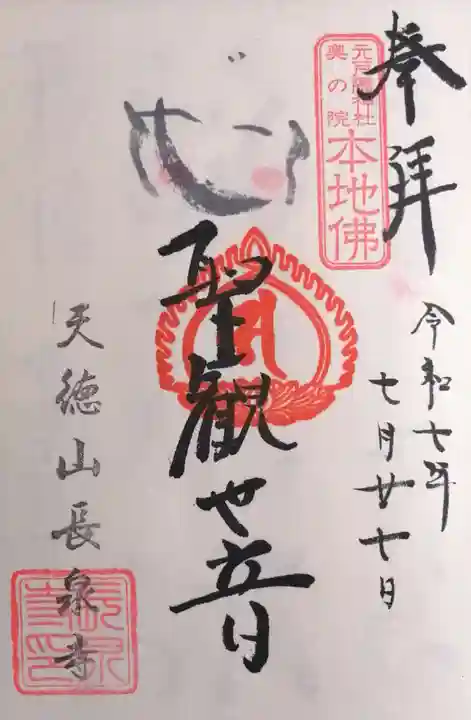 奉拝
元戸隠神社
奥の院
本地佛
令和七年
七月廿七日
心
聖観世音
天徳山長泉寺